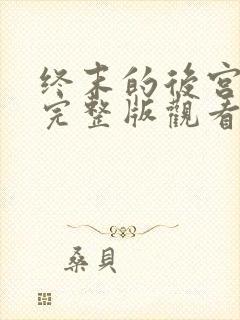 终末的後宫
完整版觀看
桑貝